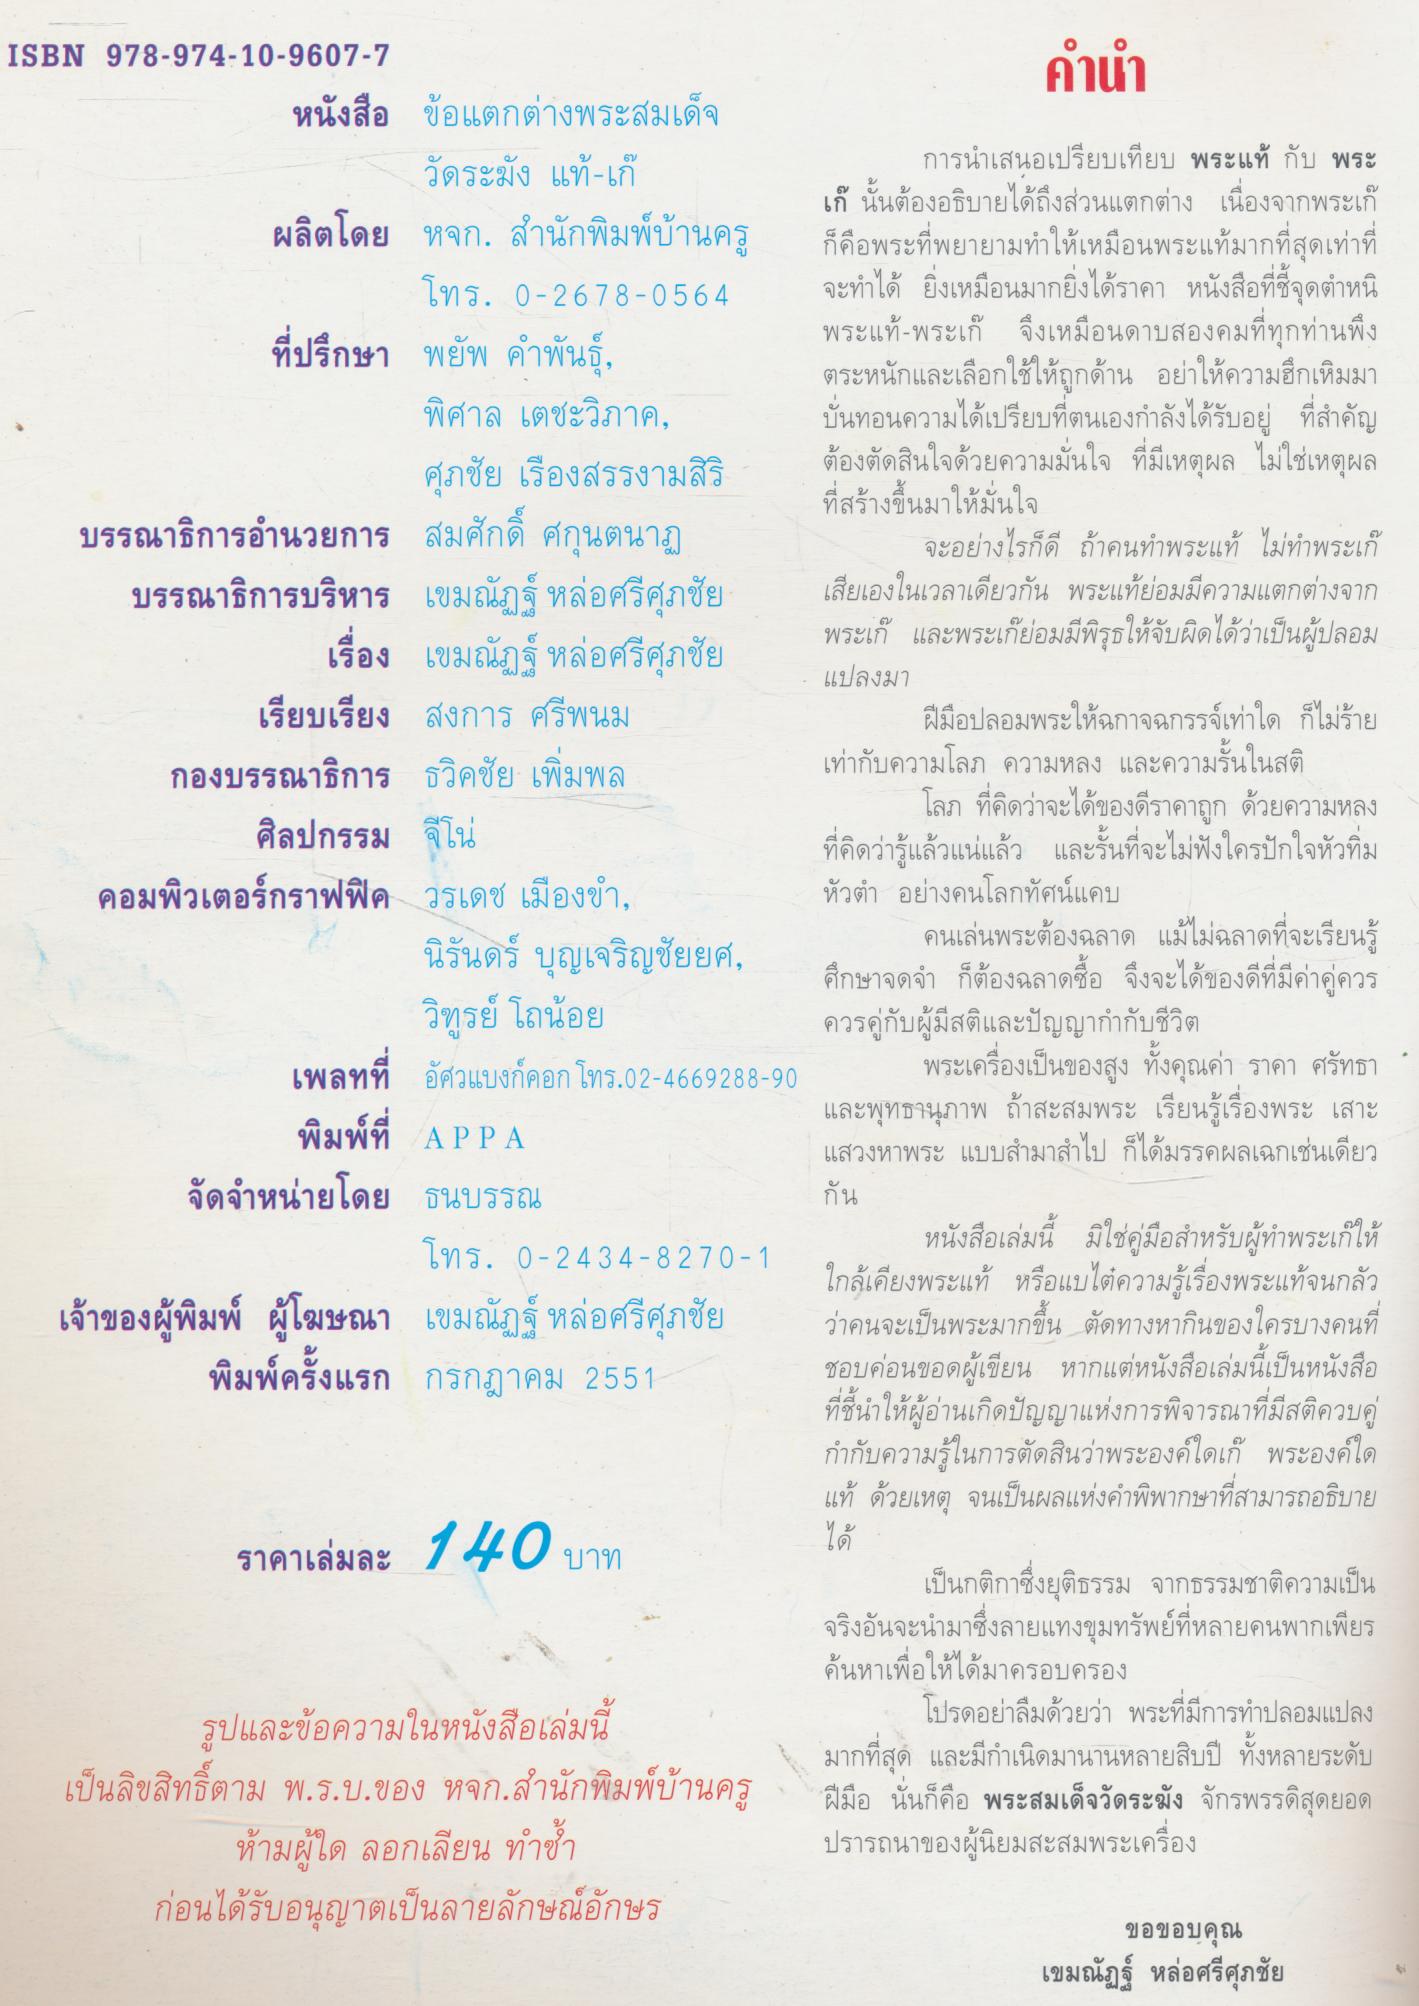 ISBN 978-974-10-9607-7
หนังสือ ข้อแตกต่างพระสมเด็จ
วัดระฆัง แท้-เก๊
ผลิตโดย หจก. สำนักพิมพ์บ้านครู
โทร. 0-2678-0564
ที่ปรึกษา พยัพ คำพันธุ์,
พิศาล เตชะวิภาค,
ศุภชัย เรืองสรรงามสิริ
บรรณาธิการอำนวยการ สมศักดิ์ ศกุนตนาฏ
บรรณาธิการบริหาร เขมณัฏฐ์ หล่อศรีศุภชัย
เรื่อง เขมณัฏฐ์ หล่อศรีศุภชัย
เรียบเรียง สงการ ศรีพนม
กองบรรณาธิการ ธวิคชัย เพิ่มพล
ศิลปกรรม จีโน่
คอมพิวเตอร์กราฟฟิค วรเดช เมืองขำ,
นิรันดร์ บุญเจริญชัยยศ,
วิฑูรย์ โถน้อย
เพลทที่ อัศวแบงก์คอก โทร.02-4669288-90
พิมพ์ที่ APPA
จัดจำหน่ายโดย ธนบรรณ
โทร. 0-2434-8270-1
เจ้าของผู้พิมพ์ ผู้โฆษณา เขมณัฏฐ์ หล่อศรีศุภชัย
พิมพ์ครั้งแรก กรกฎาคม 2551
ราคาเล่มละ 140 บาท
รูปและข้อความในหนังสือเล่มนี้
เป็นลิขสิทธิ์ตาม พ.ร.บ.ของ หจก.สำนักพิมพ์บ้านครู
ห้ามผู้ใด ลอกเลียน ทำซ้ำ
ก่อนได้รับอนุญาตเป็นลายลักษณ์อักษร
คำนำ
การนำเสนอเปรียบเทียบ พระแท้ กับ พระ
เก๊ นั้นต้องอธิบายได้ถึงส่วนแตกต่าง เนื่องจากพระเก๊
ก็คือพระที่พยายามทำให้เหมือนพระแท้มากที่สุดเท่าที่
จะทำได้ ยิ่งเหมือนมากยิ่งได้ราคา หนังสือที่ชี้จุดตำหนิ
พระแท้-พระเก๊ จึงเหมือนดาบสองคมที่ทุกท่านพึง
ตระหนักและเลือกใช้ให้ถูกด้าน อย่าให้ความฮึกเหิมมา
บั่นทอนความได้เปรียบที่ตนเองกำลังได้รับอยู่ ที่สำคัญ
ต้องตัดสินใจด้วยความมั่นใจ ที่มีเหตุผล ไม่ใช่เหตุผล
ที่สร้างขึ้นมาให้มั่นใจ
จะอย่างไรก็ดี ถ้าคนทำพระแท้ ไม่ทำพระเก๊
เสียเองในเวลาเดียวกัน พระแท้ย่อมมีความแตกต่างจาก
พระเก๊ และพระเก๊ย่อมมีพิรุธให้จับผิดได้ว่าเป็นผู้ปลอม
แปลงมา
ฝีมือปลอมพระให้ฉกาจฉกรรจ์เท่าใด ก็ไม่ร้าย
เท่ากับความโลภ ความหลง และความรั้นในสติ
โลภ ที่คิดว่าจะได้ของดีราคาถูก ด้วยความหลง
ที่คิดว่ารู้แล้วแน่แล้ว และรั้นที่จะไม่ฟังใครปักใจหัวทิ่ม
หัวตำ อย่างคนโลกทัศน์แคบ
คนเล่นพระต้องฉลาด แม้ไม่ฉลาดที่จะเรียนรู้
ศึกษาจดจำ ก็ต้องฉลาดซื้อ จึงจะได้ของดีที่มีค่าคู่ควร
ควรคู่กับผู้มีสติและปัญญากำกับชีวิต
พระเครื่องเป็นของสูง ทั้งคุณค่า ราคา ศรัทธา
และพุทธานุภาพ ถ้าสะสมพระ เรียนรู้เรื่องพระ เสาะ
แสวงหาพระ แบบสำมาสำไป ก็ได้มรรคผลเฉกเช่นเดียว
กัน
หนังสือเล่มนี้ มิใช่คู่มือสำหรับผู้ทำพระเก๊ให้
ใกล้เคียงพระแท้ หรือแบไต๋ความรู้เรื่องพระแท้จนกลัว
ว่าคนจะเป็นพระมากขึ้น ตัดทางหากินของใครบางคนที่
ชอบค่อนขอดผู้เขียน หากแต่หนังสือเล่มนี้เป็นหนังสือ
ที่ชี้นำให้ผู้อ่านเกิดปัญญาแห่งการพิจารณาที่มีสติควบคู่
กำกับความรู้ในการตัดสินว่าพระองค์ใดเก๊ พระองค์ใด
แท้ ด้วยเหตุ จนเป็นผลแห่งคำพิพากษาที่สามารถอธิบาย
ได้
เป็นกติกาซึ่งยุติธรรม จากธรรมชาติความเป็น
จริงอันจะนำมาซึ่งลายแทงขุมทรัพย์ที่หลายคนพากเพียร
ค้นหาเพื่อให้ได้มาครอบครอง
โปรดอย่าลืมด้วยว่า พระที่มีการทำปลอมแปลง
มากที่สุด และมีกำเนิดมานานหลายสิบปี ทั้งหลายระดับ
ฝีมือ นั่นก็คือ พระสมเด็จวัดระฆัง จักรพรรดิสุดยอด
ปรารถนาของผู้นิยมสะสมพระเครื่อง
ขอขอบคุณ
เขมณัฏฐ์ หล่อศรีศุภชัย